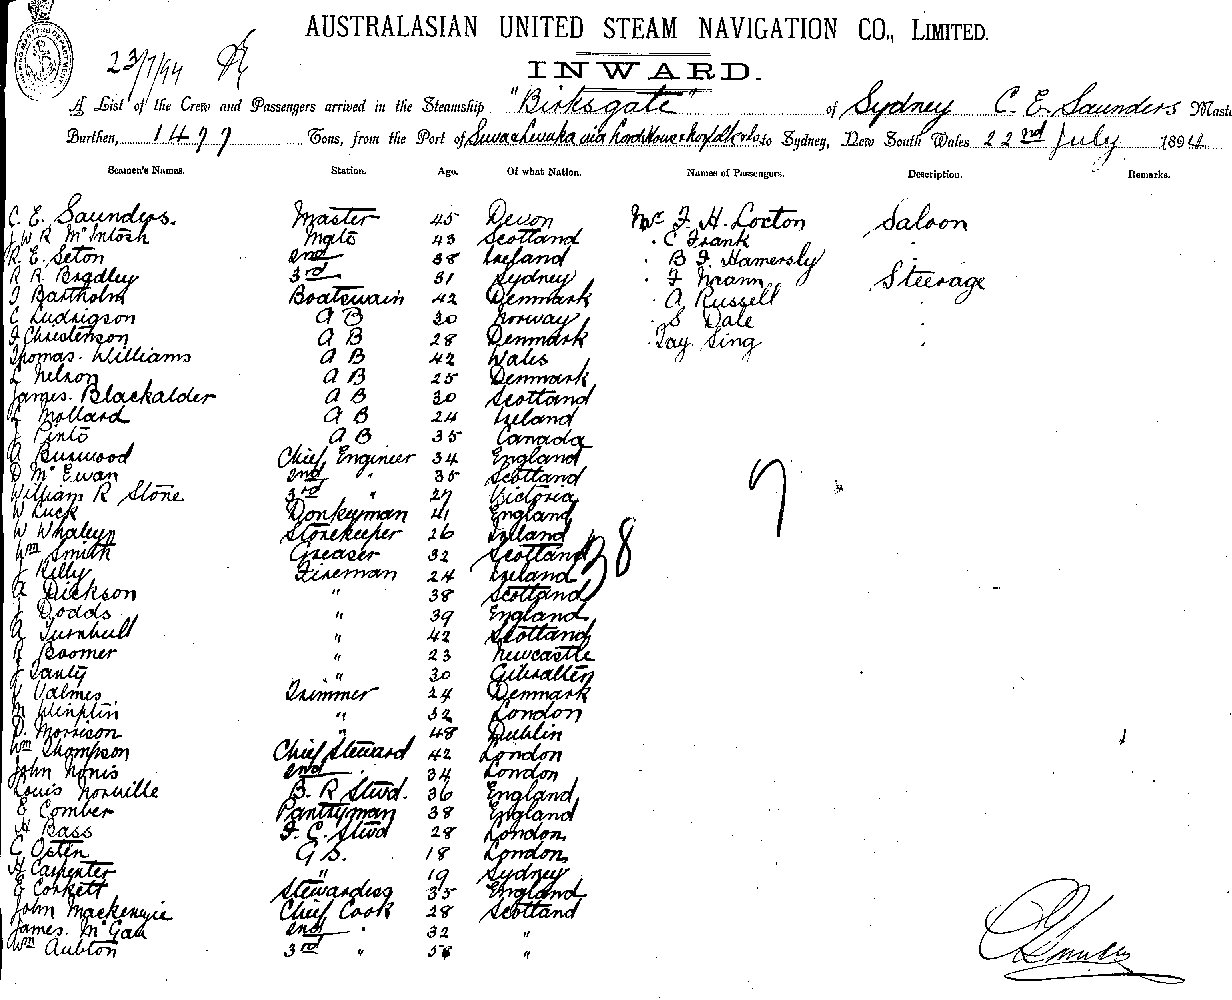 AUSTRALASIAN UNITED STEAM NAVIGATION CO., LIMITED.
23/7/94
INWARD.
A List of the Crew and Passengers arrived in the Steamship "Birksgate" of Sydney C. E. Saunders Maste
Burthen, 1477 Tons, from the Port of to Sydney, New South Wales 22nd July 1894
Seamen's Names. Station. Age. Of what Nation. Names of Passengers. Description. Remarks.
C. E. Saunders. Master 45 Devon Mr F. H. Loxton Saloon
J W R McIntosh Mate 43 Scotland " C Frank "
R. E. Seton 2nd 38 Ireland " B F Hamersly "
R R Bradley 3rd 31 Sydney " F Mann Steerage
Bartholm Boatswain 42 Denmark " A Russell "
C Ludvigson A B 30 Norway " S Dale "
F Christenson A B 28 Denmark Tay Sing "
Thomas Williams A B 42 Wales
L Nelson A B 25 Denmark
James Blackalder A B 30 Scotland
Mollard A B 24 Ireland
J Pinto A B 35 Canada
A Burwood Chief Engineer 34 England
D McEwan 2nd " 35 Scotland 7
William R Stone 3rd " 27 Victoria
W Luck Donkeyman 41 England
W Whaleyn Storekeeper 26 Ireland
Wm Smith Greaser 32 Scotland 38
J Kelly Fireman 24 Ireland
A Dickson " 38 Scotland
J Dodds " 39 England
A Turnbull " 42 Scotland
R Boomer " 23 Newcastle
J " 30 Gibralter
Valmes Trimmer 24 Denmark
M " 32 London
D. Morrison " 48 Dublin
Wm Thompson Chief Steward 42 London
John Nonis 2nd " 34 London
Louis Norville B. R Stwd. 36 England
E Comber Pantryman 38 England
H Bass F. C. Stwd 28 London
C Osten G S. 18 London
H Carpenter " 19 Sydney
E Corkett Stewardess 35 England
John Mackenzie Chief Cook 28 Scotland
James McGau 2nd " 32 "
Wm Aubton 3rd " 58 "
C E Saunders